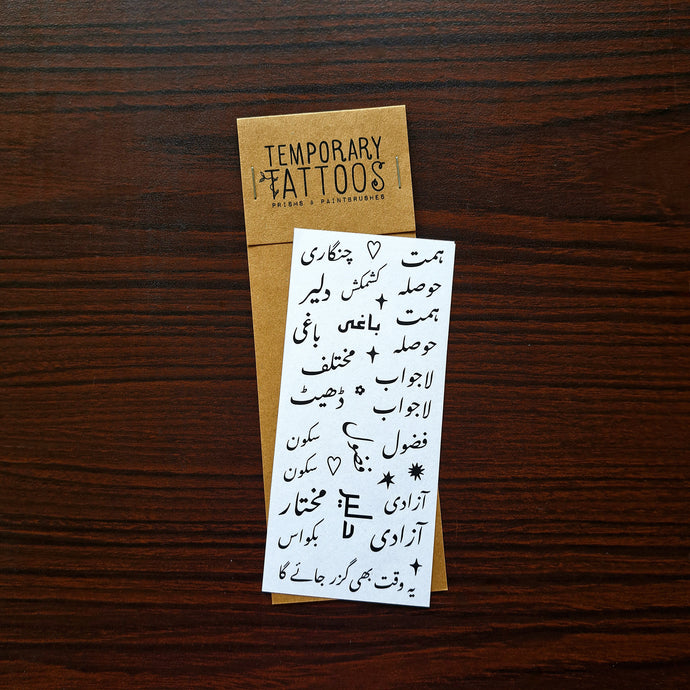 TEMPORARY
TATTOOS
PRISMS & PAINTBRUSHES
ہمت چنگاری
حوصلہ کشمکش دلیر
ہمت باغی باغی
حوصلہ مختلف
لاجواب
لاجواب ڈھیٹ
فضول فضول سکون
سکون
آزادی دلیر مختار
آزادی بکواس
یہ وقت بھی گزر جائے گا